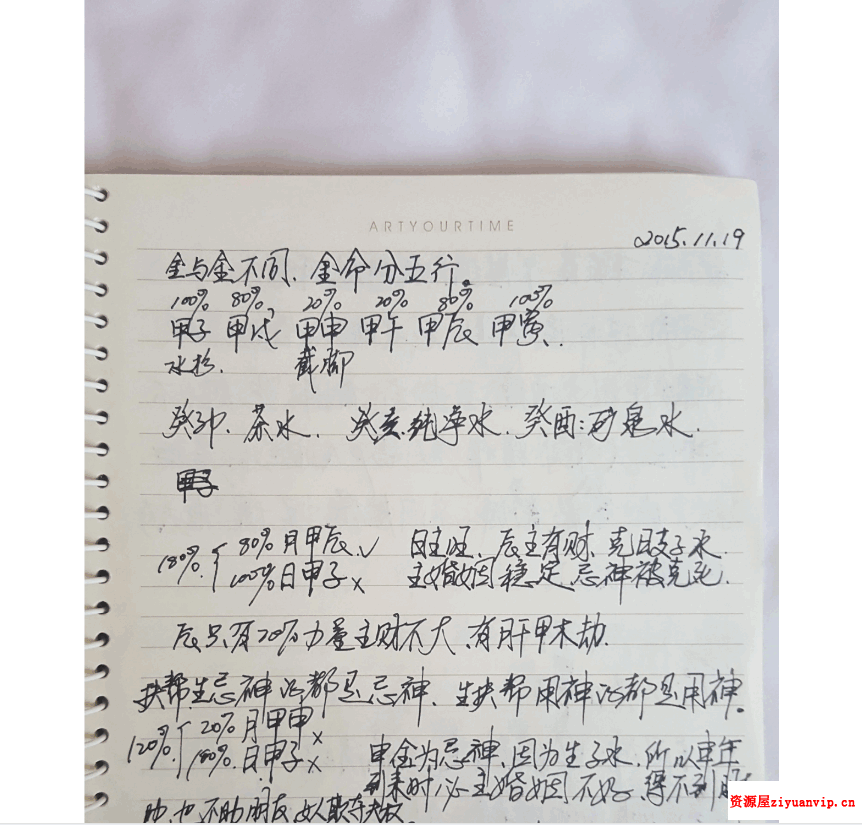 ARTYOURTIME
2015.11.19
金与金不同、金命分五行。
100% 80% 20% 20% 80% 100%
甲子 甲戌 甲申 甲午 甲辰 甲寅、
水杉. 截脚
癸卯、茶水、癸亥纯净水、癸酉:矿泉水.
甲子
180% { 80%月甲辰√ 日主旺、辰主有财、克日支子水
100%日甲子× 主婚姻稳定 忌神被克死.
辰只有20%力量主财不大、有甲木劫.
扶帮生忌神的都是忌神、生扶帮用神的都是用神.
120% { 20%月甲申× 申金为忌神、因为生子水、所以申年
100%日甲子× 到来时必主婚姻不好、得不到
助,也不助朋友
资源屋ziyuanvip.cn